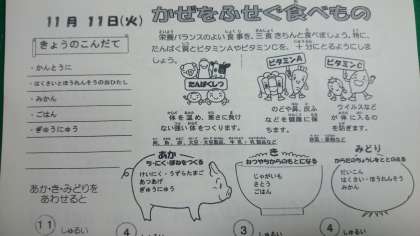 11月 11日(火)
かぜをふせぐ食べもの
栄養バランスのよい食事を、三食きちんと食べましょう。特に、
たんぱく質とビタミンAやビタミンCを、十分にとるようにしま
しょう。
きょうのこんだて
・かんとうに
・はくさいとほうれんそうのおひたし
・みかん
・ごはん
・ぎゅうにゅう
たんぱくしつ
体を温め、寒さに負け
ない強い体をつくります。
ビタミンA
のどや鼻、皮ふ
などを健康に保
ちます。
ビタミンC
ウイルスなど
が体に入るの
を防ぎます。
あか・き・みどりを
あわせると
11 しゅるい
あか
ち・にく・ほねをつくる
けいにく・うずらたまご
あつあげ
ぎゅうにゅう
4 しゅるい
き
おつやちからのもとになる
じゃがいも
さとう
ごはん
3 しゅるい
みどり
からだのちょうしをととのえる
だいこん
はくさい・ほうれんそう
みかん
4 しゅるい